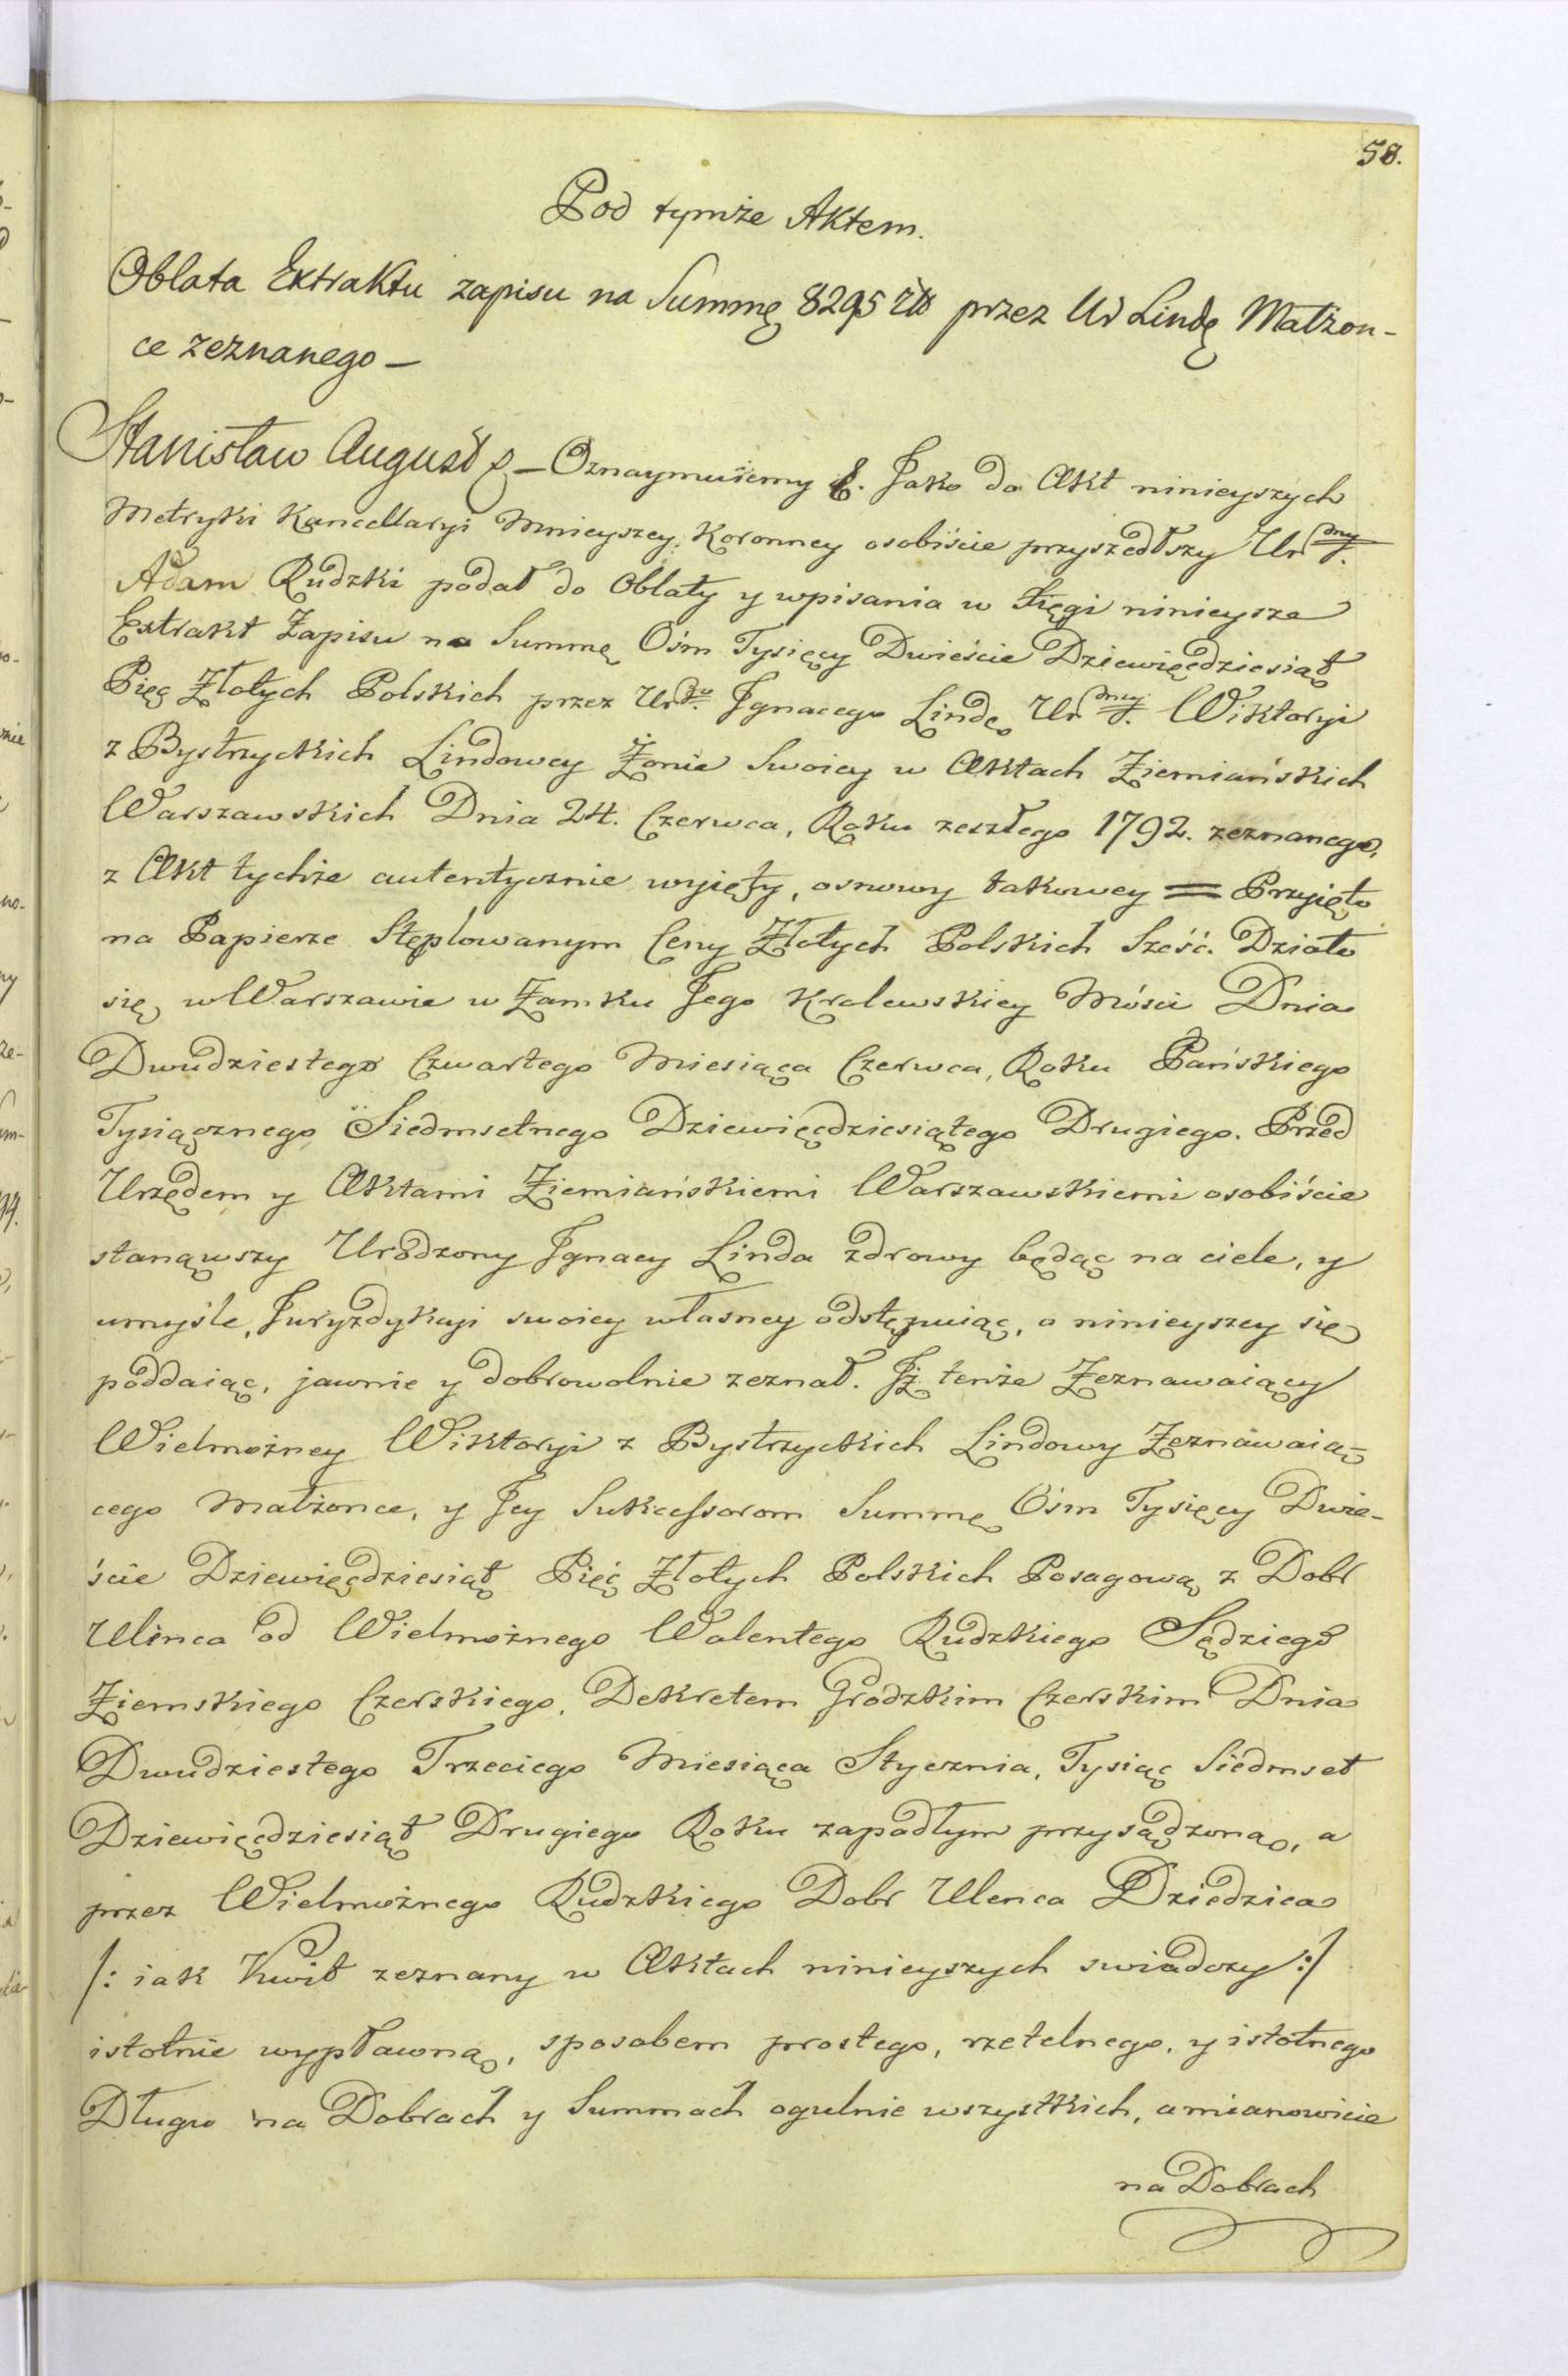 58.
Pod tymże Aktem.
Oblata Extraktu zapisu na Summę 8295 zł przez Ur Lindę Małżon-
ce zeznanego —
Stanisław August — Oznaymuiemy &. Jako do Akt ninieyszych
Metryki Kancellaryi Mnieyszey Koronney osobiście przyszedłszy Urdny.
Adam Rudzki podał do Oblaty y wpisania w Xięgi ninieysze
Extrakt Zapisu na Summę Ośm Tysięcy Dwieście Dziewięćdziesiąt
Pięć Złotych Polskich przez Urdgo. Jgnacego Lindę Urdney. Wiktoryi
z Bystrzyckich Lindowey Żonie Swoiey w Aktach Ziemiańskich
Warszawskich Dnia 24. Czerwca, Roku zeszłego 1792. zeznanego,
z Akt tychże autentycznie wyięty, osnowy takowey = Przyięto
na Papierze Stęplowanym Ceny Złotych Polskich Sześć. Działo
się w Warszawie w Zamku Jego Krolewskiey Mości Dnia
Dwudziestego Czwartego Miesiąca Czerwca, Roku Pańskiego
Tysiącznego Siedmsetnego Dziewięćdziesiątego Drugiego. Przed
Urzędem y Aktami Ziemiańskiemi Warszawskiemi osobiście
stanąwszy Urodzony Jgnacy Linda zdrowy będąc na ciele, y
umyśle, Juryzdykcyi swoiey własney odstępuiąc, a ninieyszey się
poddaiąc, jawnie y dobrowolnie zeznał. Jż tenże Zeznawaiący
Wielmożney Wiktoryi z Bystrzyckich Lindowy Zeznawaią-
cego Małżonce, y Jey Sukcessorom Summę Ośm Tysięcy Dwie-
ście Dziewięćdziesiąt Pięć Złotych Polskich Posagową z Dobr
Ulinca od Wielmożnego Walentego Rudzkiego Sędziego
Ziemskiego Czerskiego, Dekretem Grodzkim Czerskim Dnia
Dwudziestego Trzeciego Miesiąca Stycznia, Tysiąc Siedmset
Dziewięćdziesiąt Drugiego Roku zapadłym przysądzoną, a
przez Wielmożnego Rudzkiego Dobr Ulenca Dziedzica
/: iak Kwit zeznany w Aktach ninieyszych swiadczy :/
istotnie wypławną, sposobem prostego, rzetelnego, y istotnego
Długu na Dobrach y Summach ogulnie wszystkich, a mianowicie
na Dobrach